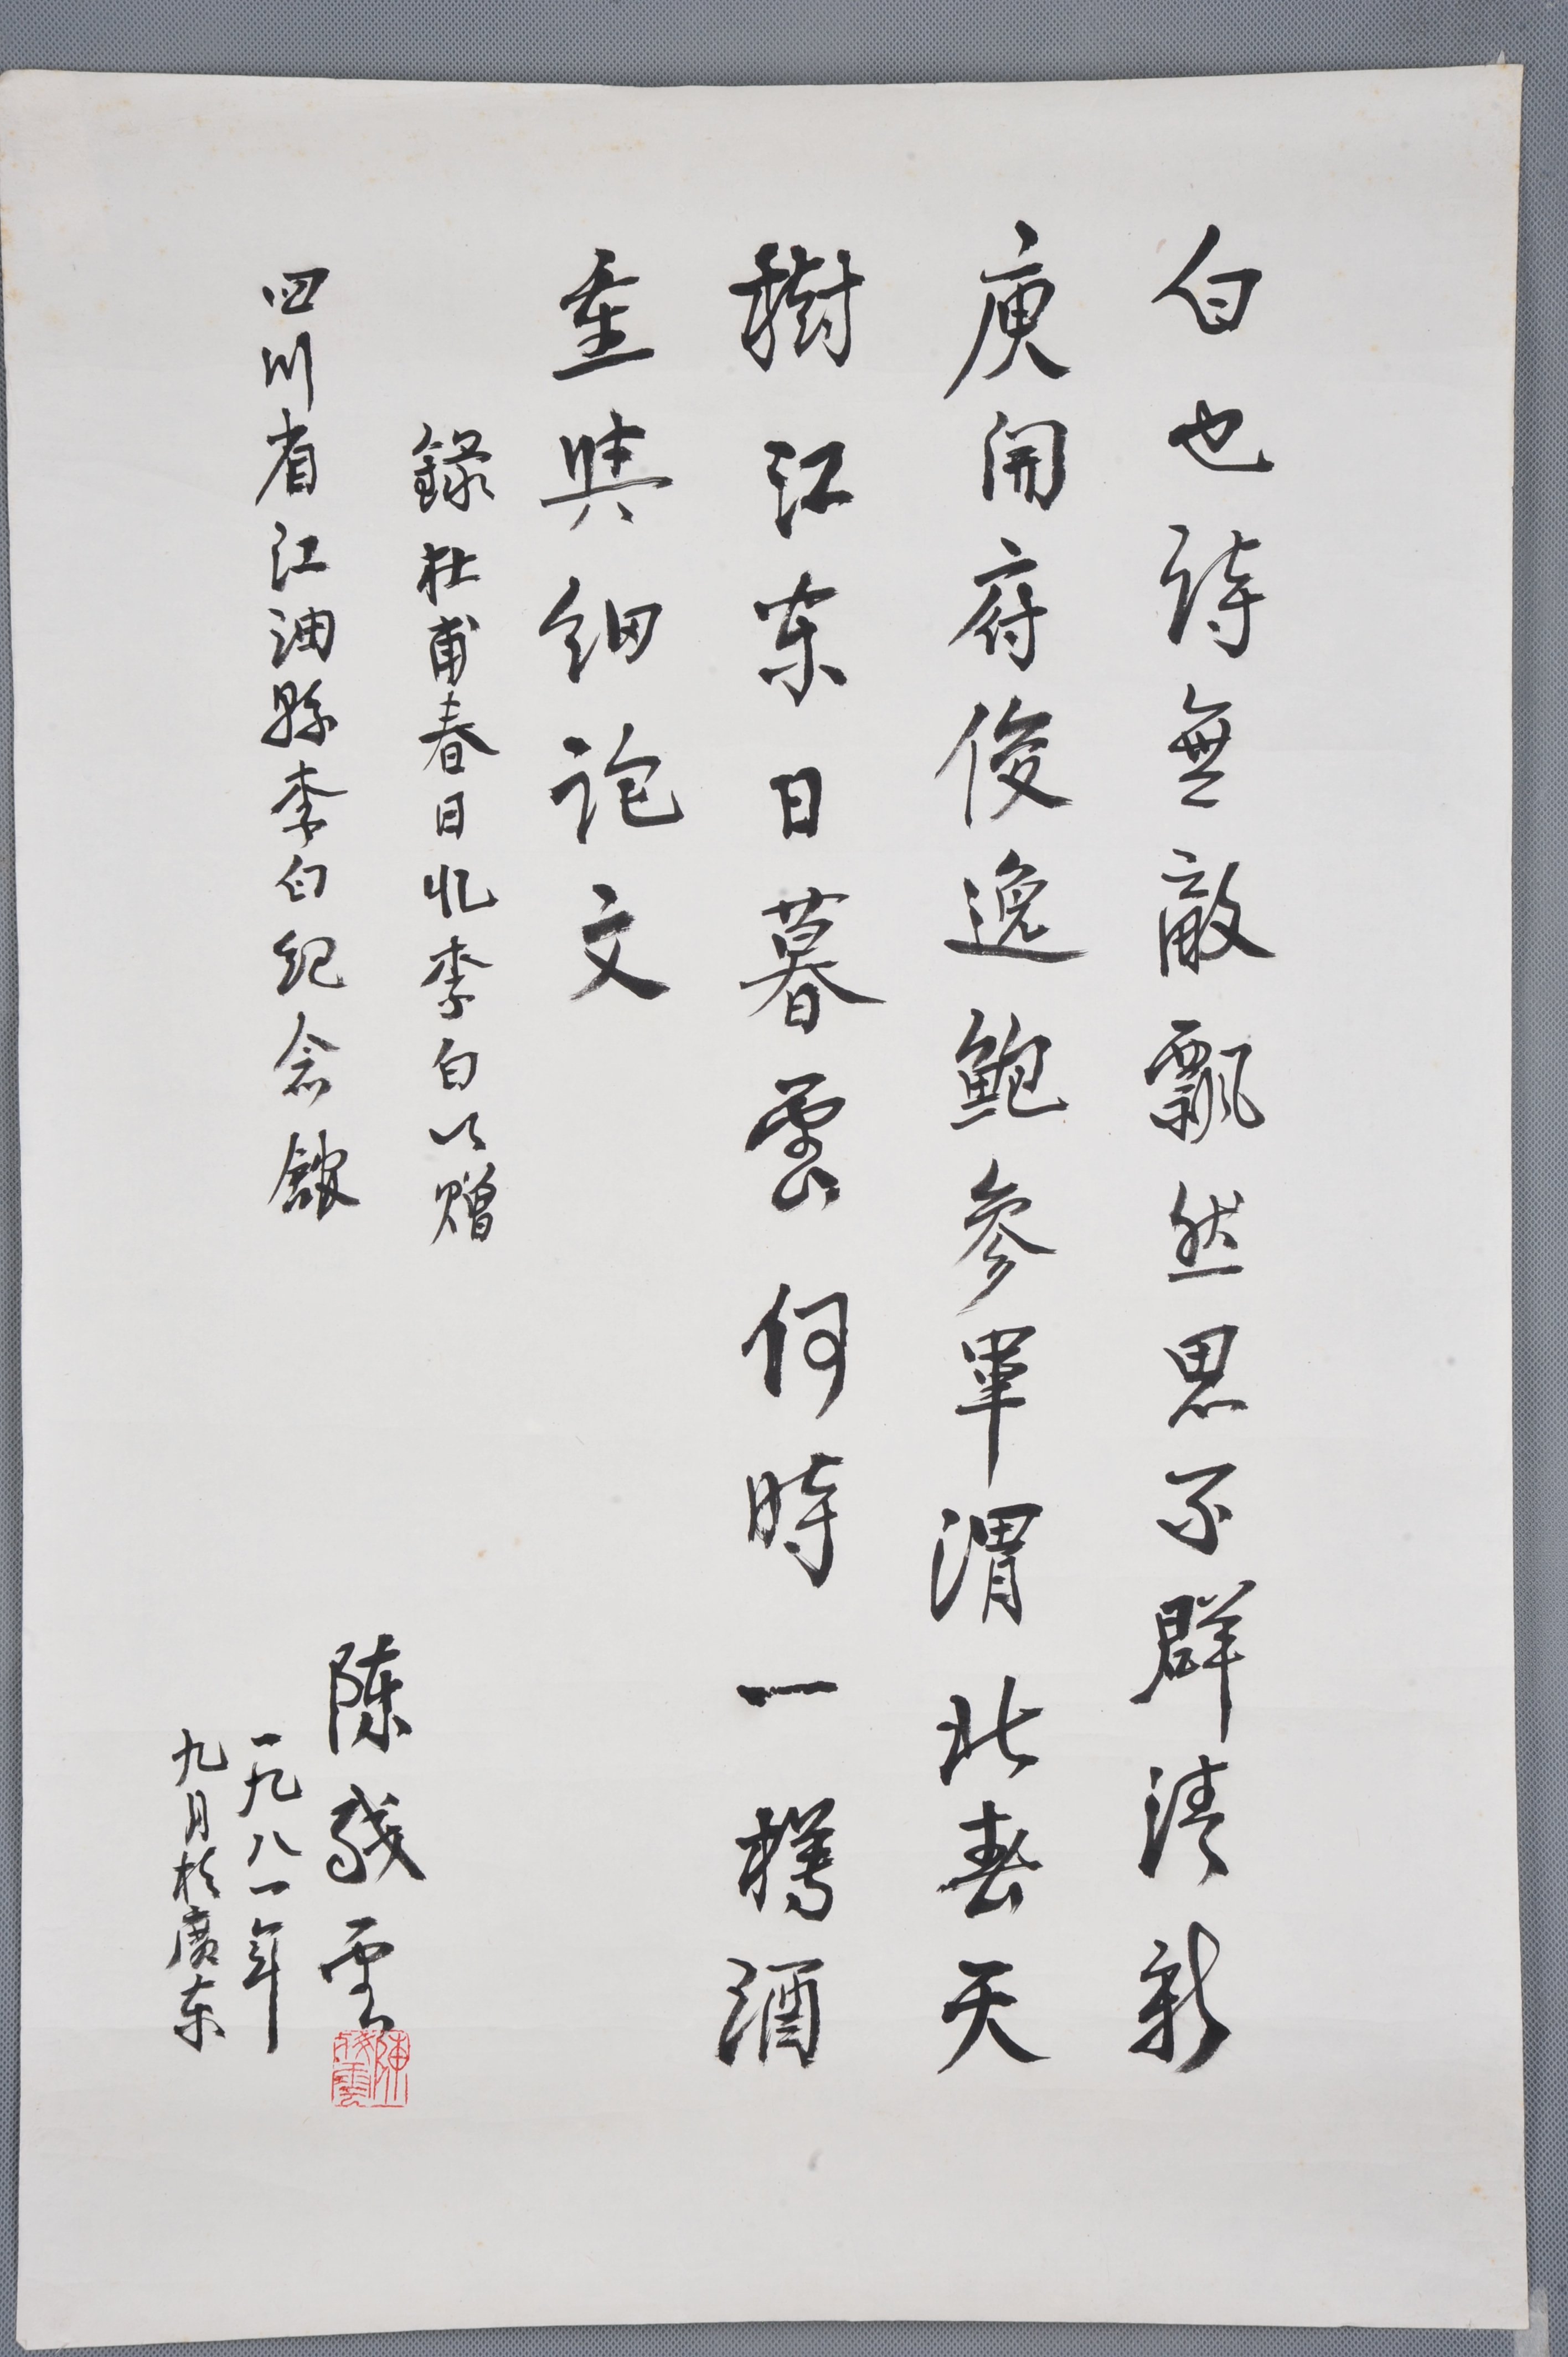 白也詩無敵飄然思不群清新
庾開府俊逸鮑參軍渭北春天
樹江东日暮雲何時一樽酒
重與细論文
錄杜甫春日忆李白以赠
四川省江油縣李白纪念館
陈残雲
一九八一年
九月於廣东
陳殘雲